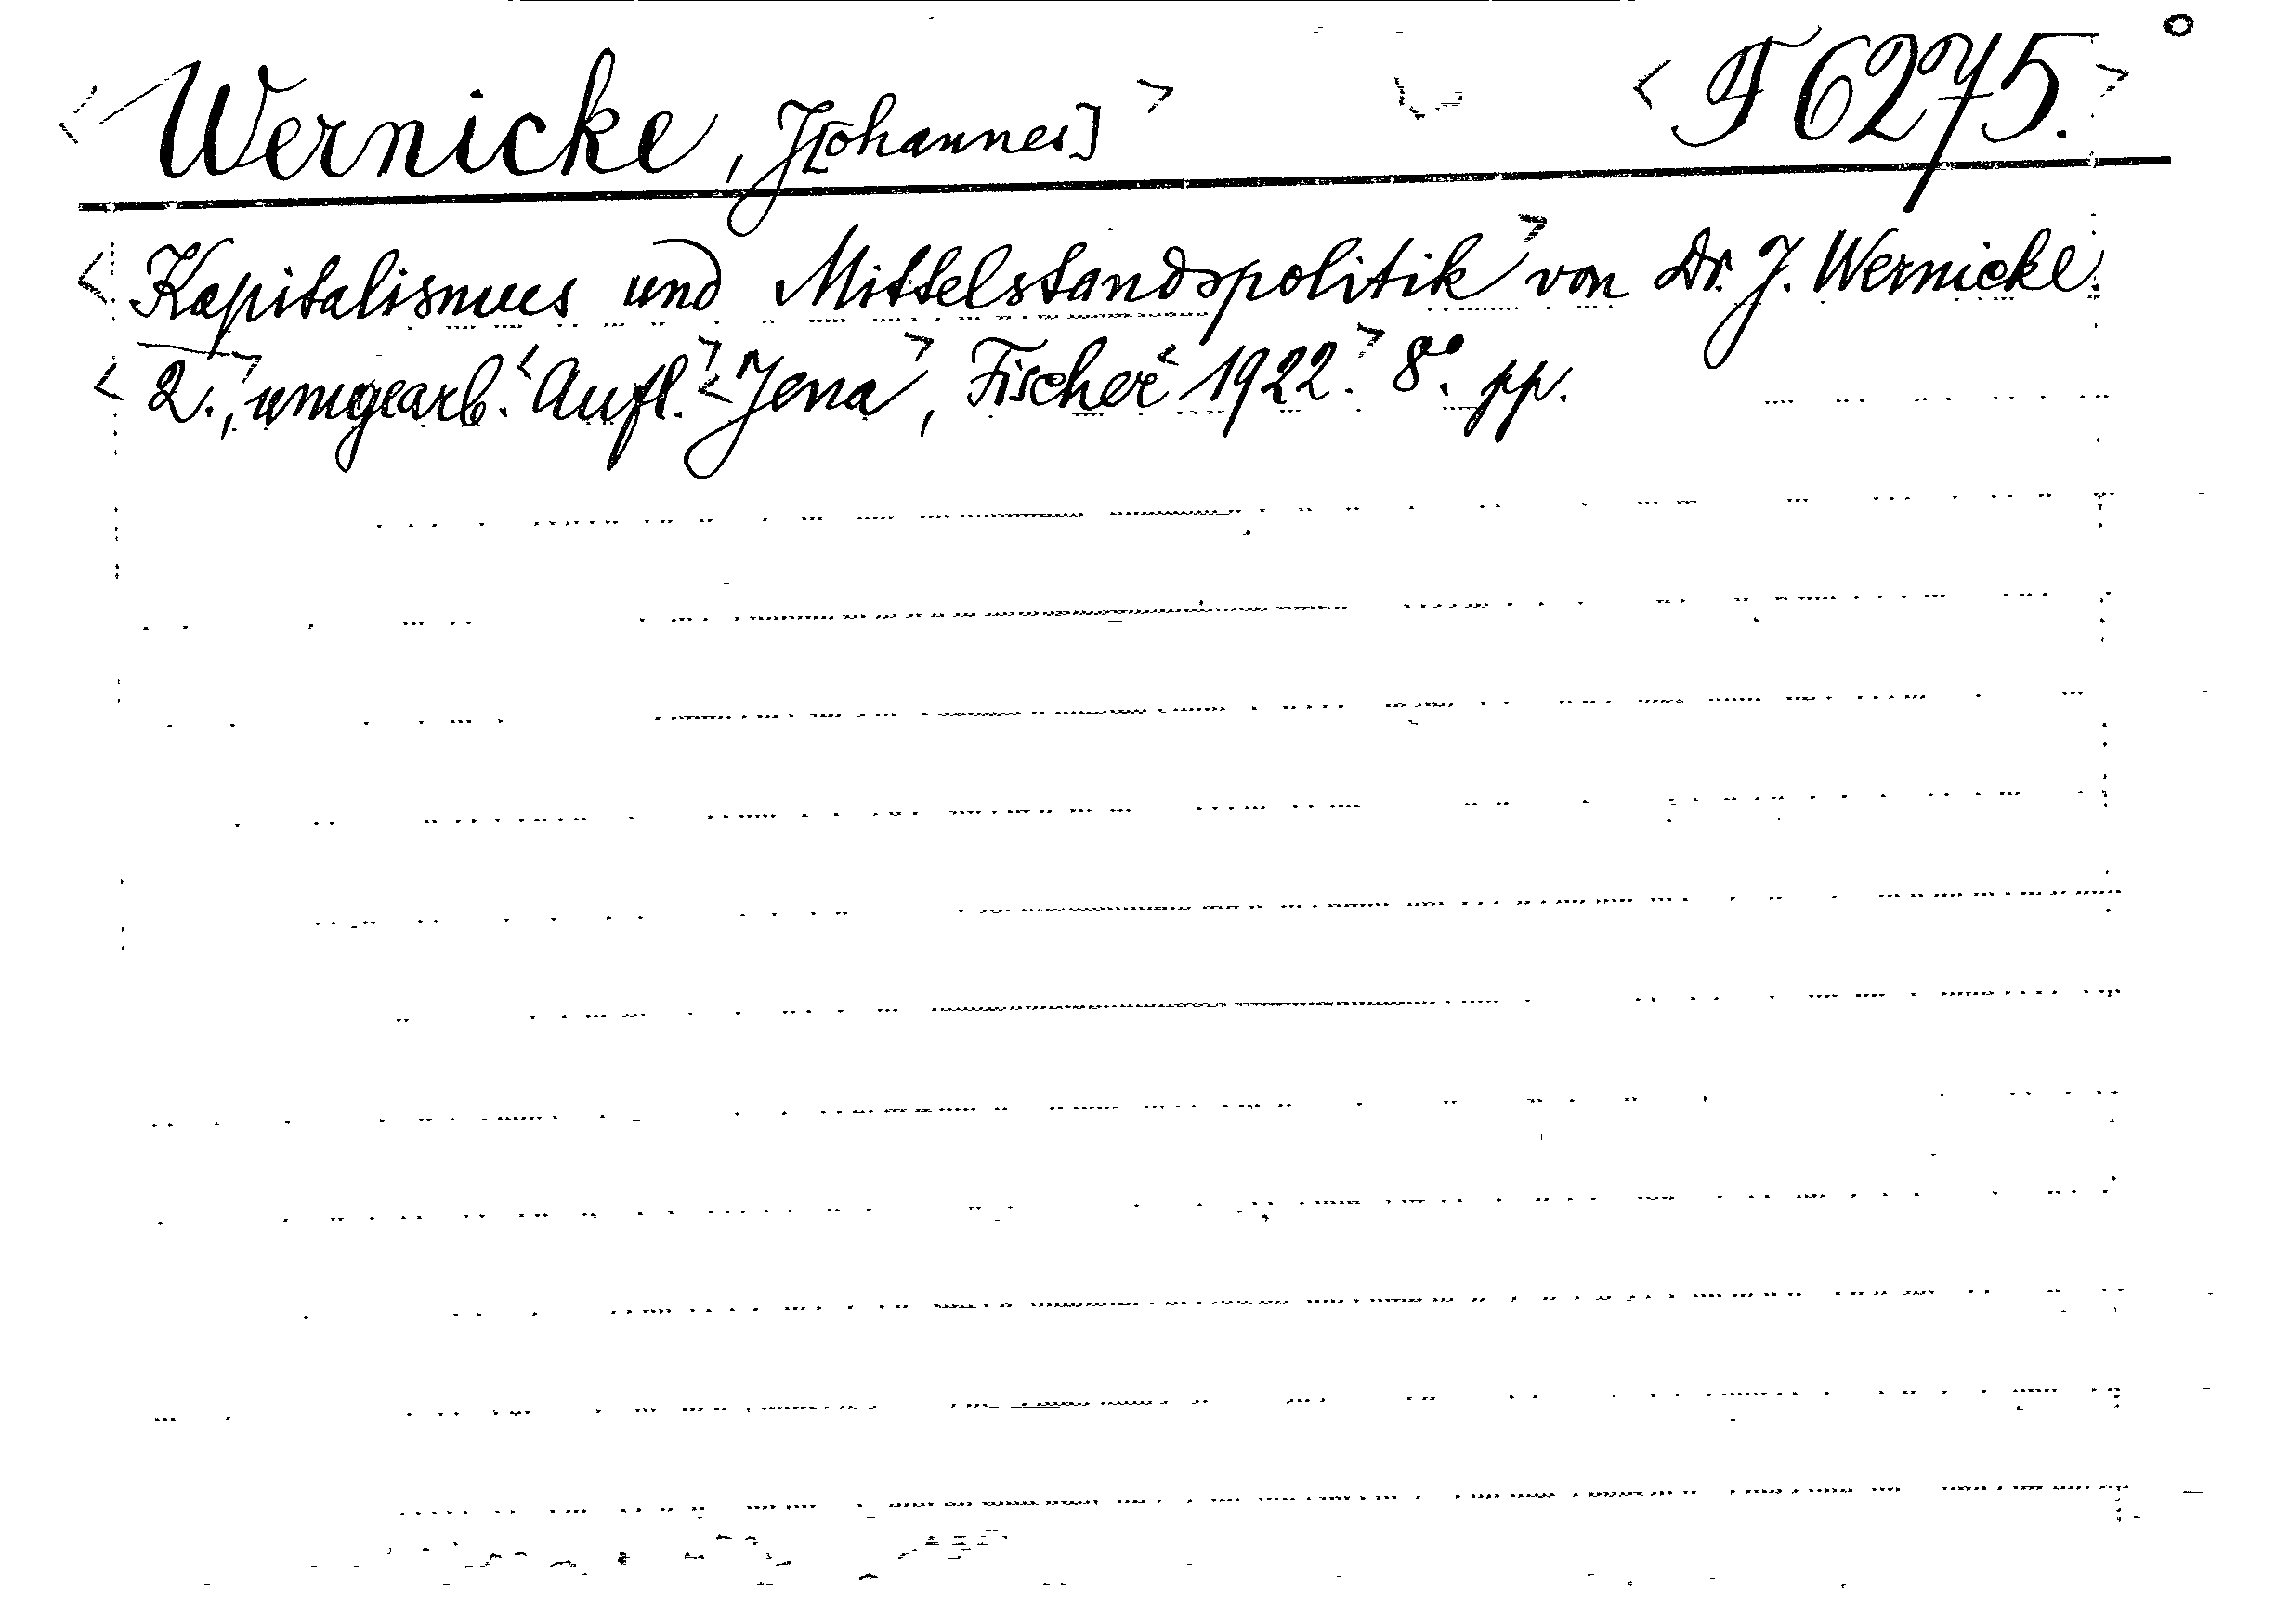 < Wernicke, J[ohannes] > < F 6275. >
< Kapitalismus und Mittelstandspolitik > von Dr. J. Wernicke.
< 2., > umgearb. < Aufl. > < Jena >, Fischer < 1922. > 8°. pp.